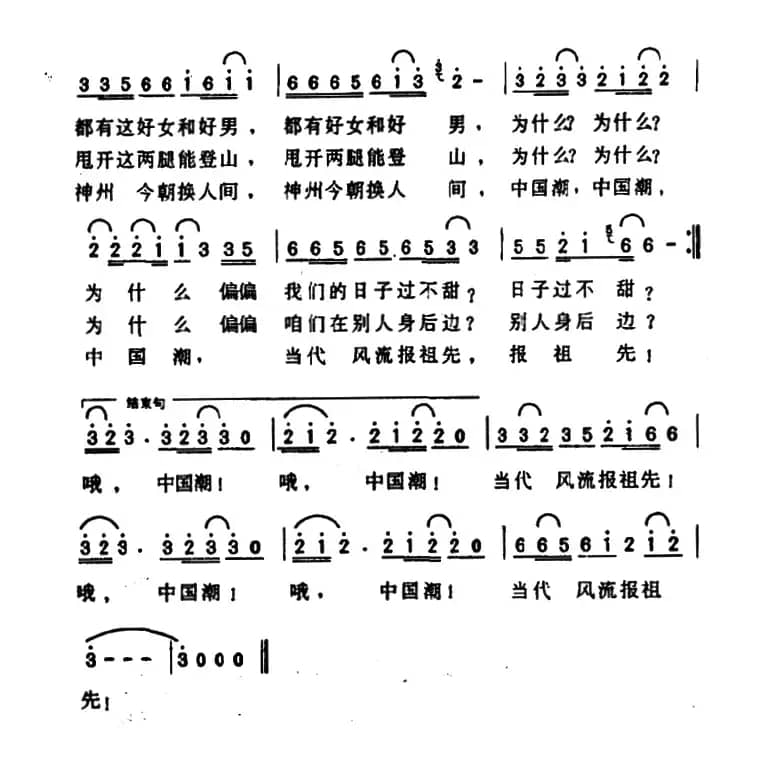 3 3 5 6 6 1 6 1 1 | 6 6 6 5 6 1 3 3 2 - | 3 2 3 3 2 1 2 2 |
都有这好女和好男, 都有好女和好 男, 为什么? 为什么?
甩开这两腿能登山, 甩开这两腿能登 山, 为什么? 为什么?
神州 今朝换人间, 神州今朝换人 间, 中国潮, 中国潮,
2 2 2 1 1 3 3 5 | 6 6 5 6 5 6 5 3 3 | 5 5 2 1 5 6 6 - :||
为 什 么 偏偏 我们的日子过不甜? 日子过不 甜?
为 什 么 偏偏 咱们在别人身后边? 别人身后 边?
中 国 潮, 当代 风流报祖先, 报 祖 先!
结束句
3 2 3 . 3 2 3 3 0 | 2 1 2 . 2 1 2 2 0 | 3 3 2 3 5 2 1 6 6 |
哦, 中国潮! 哦, 中国潮! 当代 风流报祖先!
3 2 3 . 3 2 3 3 0 | 2 1 2 . 2 1 2 2 0 | 6 6 5 6 1 2 1 2 |
哦, 中国潮! 哦, 中国潮! 当代 风流报祖
3 - - - | 3 0 0 0 ||
先!